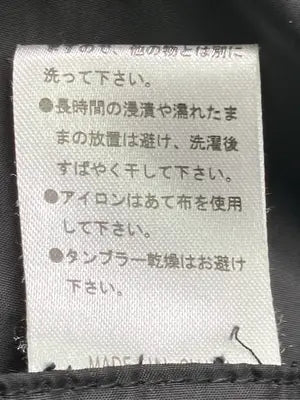 ますので、他の物とは別に
洗って下さい。
●長時間の浸漬や濡れたま
まの放置は避け、洗濯後
すばやく干して下さい。
●アイロンはあて布を使用
して下さい。
●タンブラー乾燥はお避け
下さい。
MADE IN